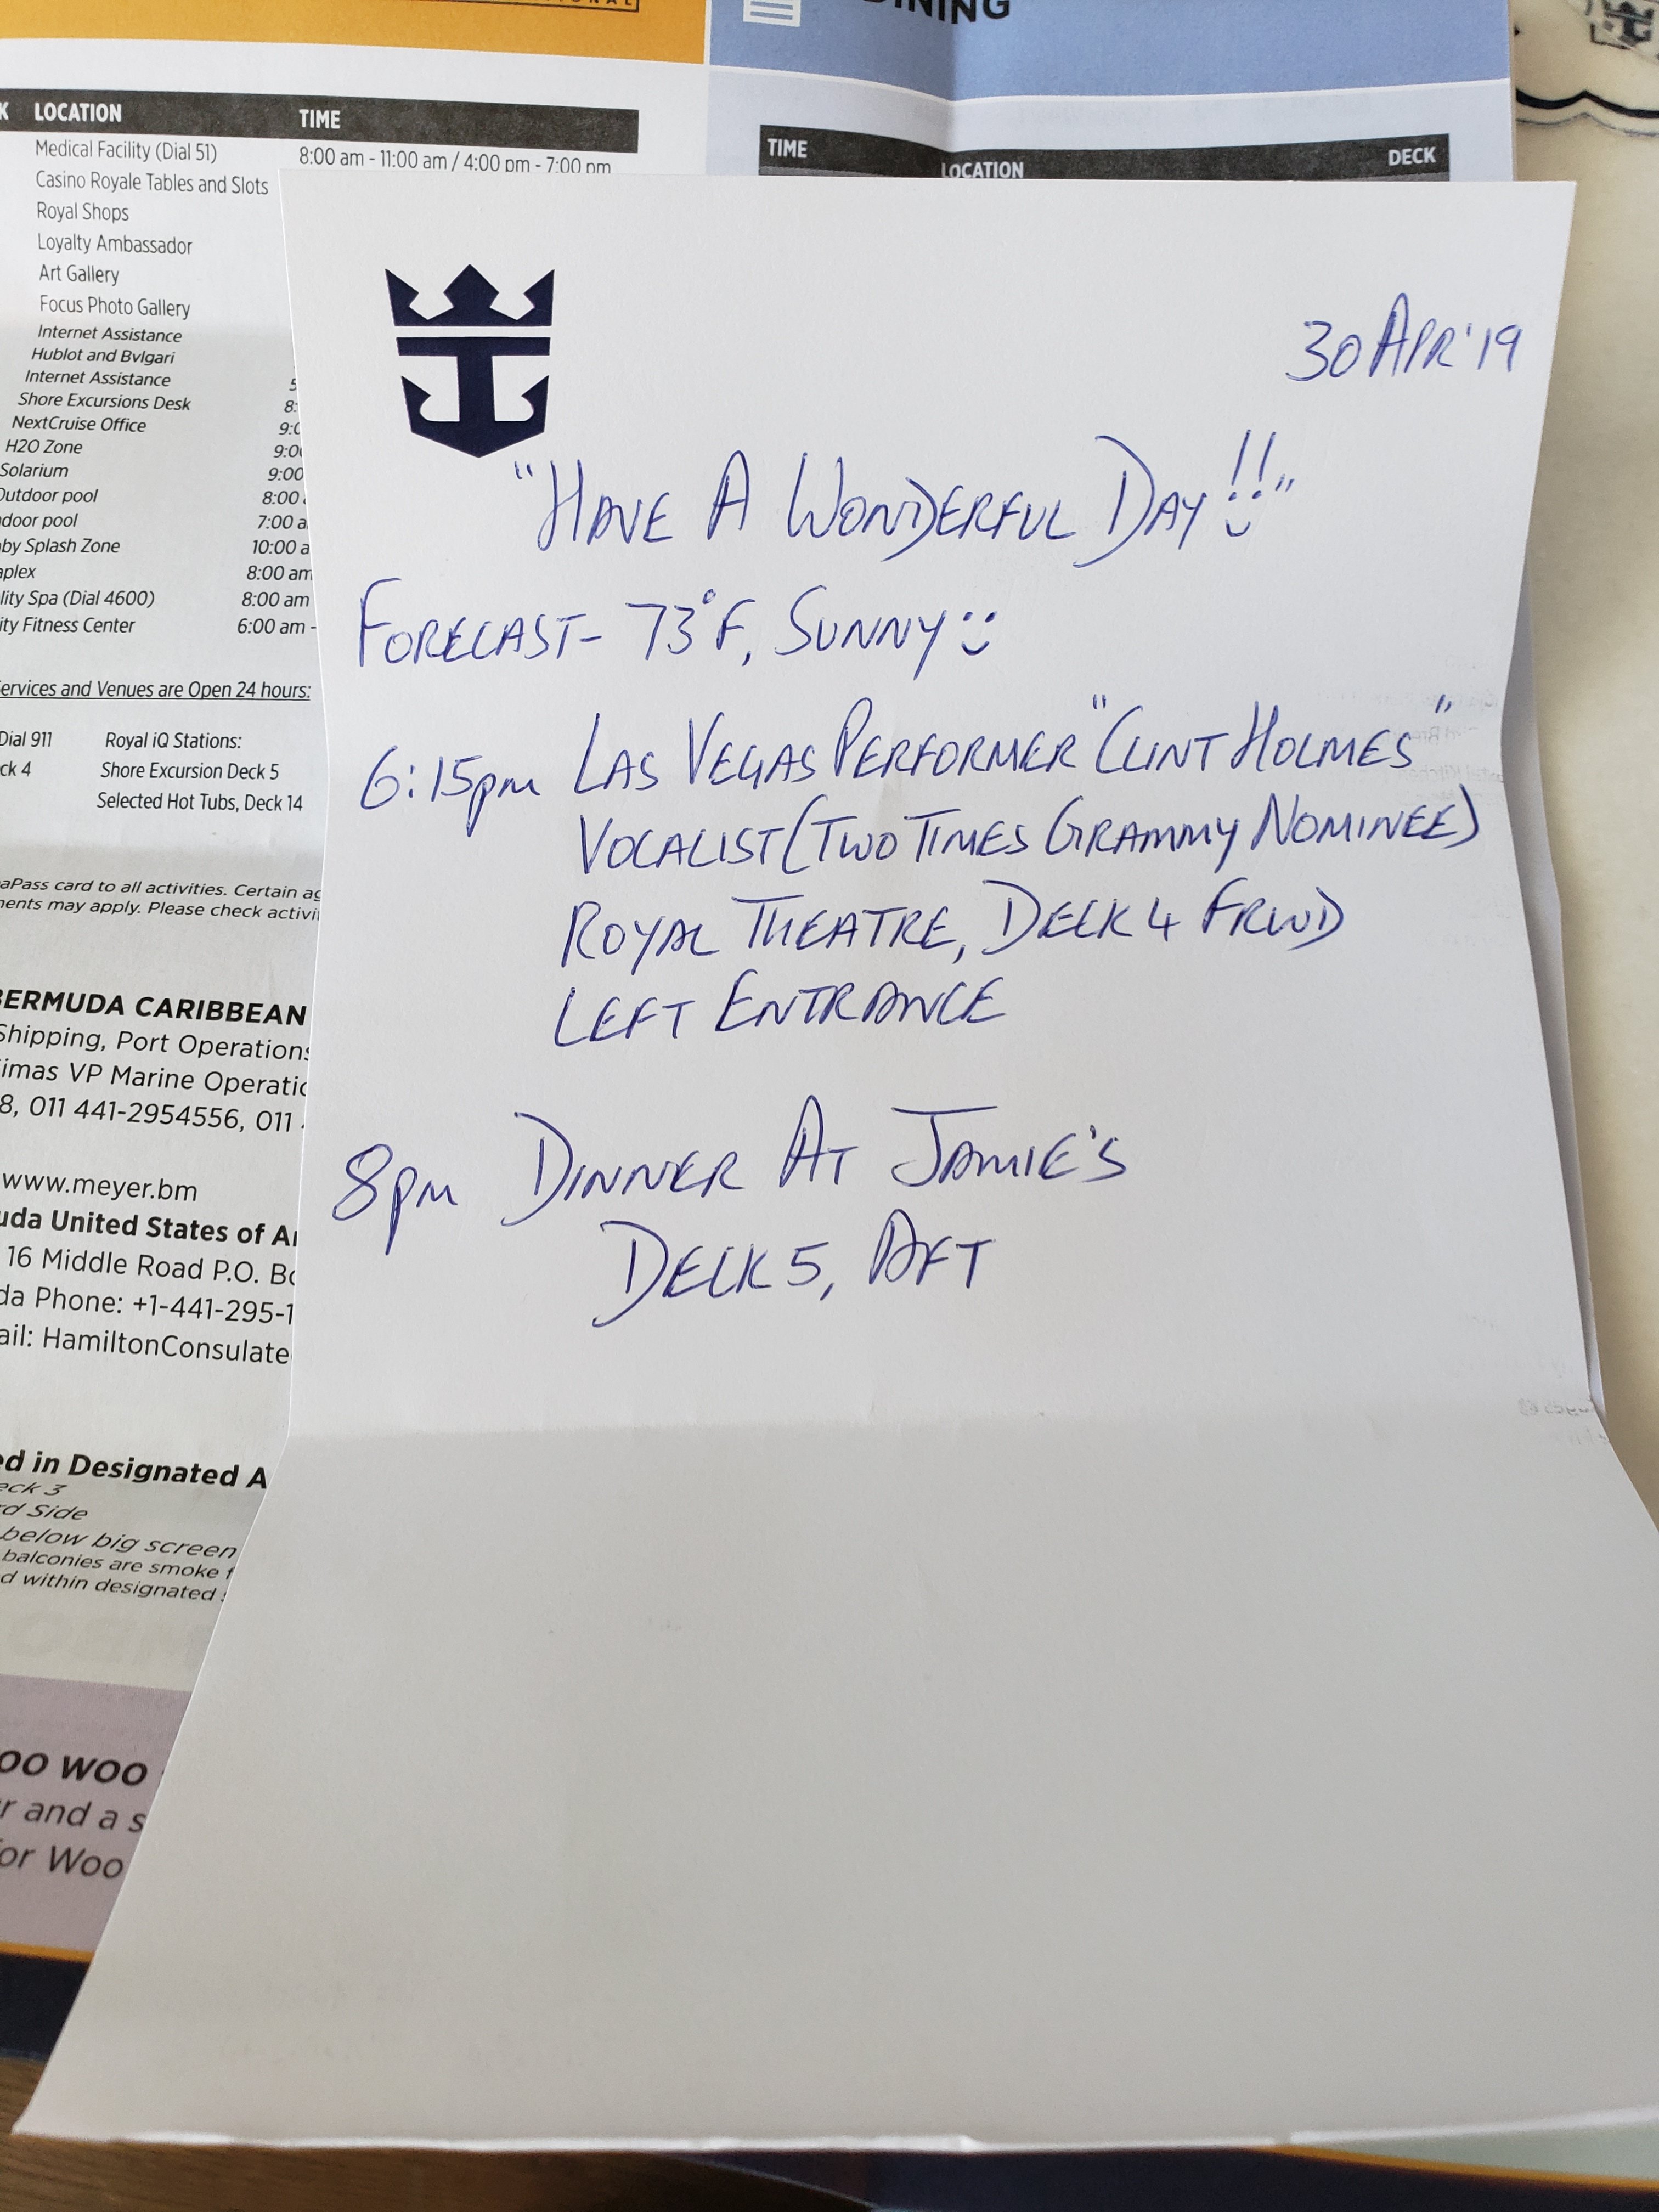 DINING
LOCATION TIME
Medical Facility (Dial 51) 8:00 am - 11:00 am / 4:00 pm - 7:00 pm
Casino Royale Tables and Slots
Royal Shops
Loyalty Ambassador
Art Gallery
Focus Photo Gallery
Internet Assistance
Hublot and Bvlgari
Internet Assistance 5
Shore Excursions Desk 8:
NextCruise Office 9:0
H2O Zone 9:00
Solarium 9:00
Outdoor pool 8:00
door pool 7:00 a
by Splash Zone 10:00 a
plex 8:00 am
lity Spa (Dial 4600) 8:00 am
ity Fitness Center 6:00 am -
ervices and Venues are Open 24 hours:
Dial 911 Royal iQ Stations:
ck 4 Shore Excursion Deck 5
Selected Hot Tubs, Deck 14
aPass card to all activities. Certain ag
ents may apply. Please check activi
BERMUDA CARIBBEAN
Shipping, Port Operations
imas VP Marine Operatio
8, 011 441-2954556, 011
www.meyer.bm
uda United States of A
16 Middle Road P.O. Bo
da Phone: +1-441-295-1
ail: HamiltonConsulate
ed in Designated A
eck 3
rd Side
below big screen
balconies are smoke f
d within designated
oo woo
r and a s
or Woo
TIME LOCATION DECK
30 APR '19
"HAVE A WONDERFUL DAY!!"
FORECAST- 73°F, SUNNY
6:15pm LAS VEGAS PERFORMER "CLINT HOLMES"
VOCALIST (TWO TIMES GRAMMY NOMINEE)
ROYAL THEATRE, DECK 4 FRWD
LEFT ENTRANCE
8pm DINNER AT JAMIE'S
DECK 5, AFT